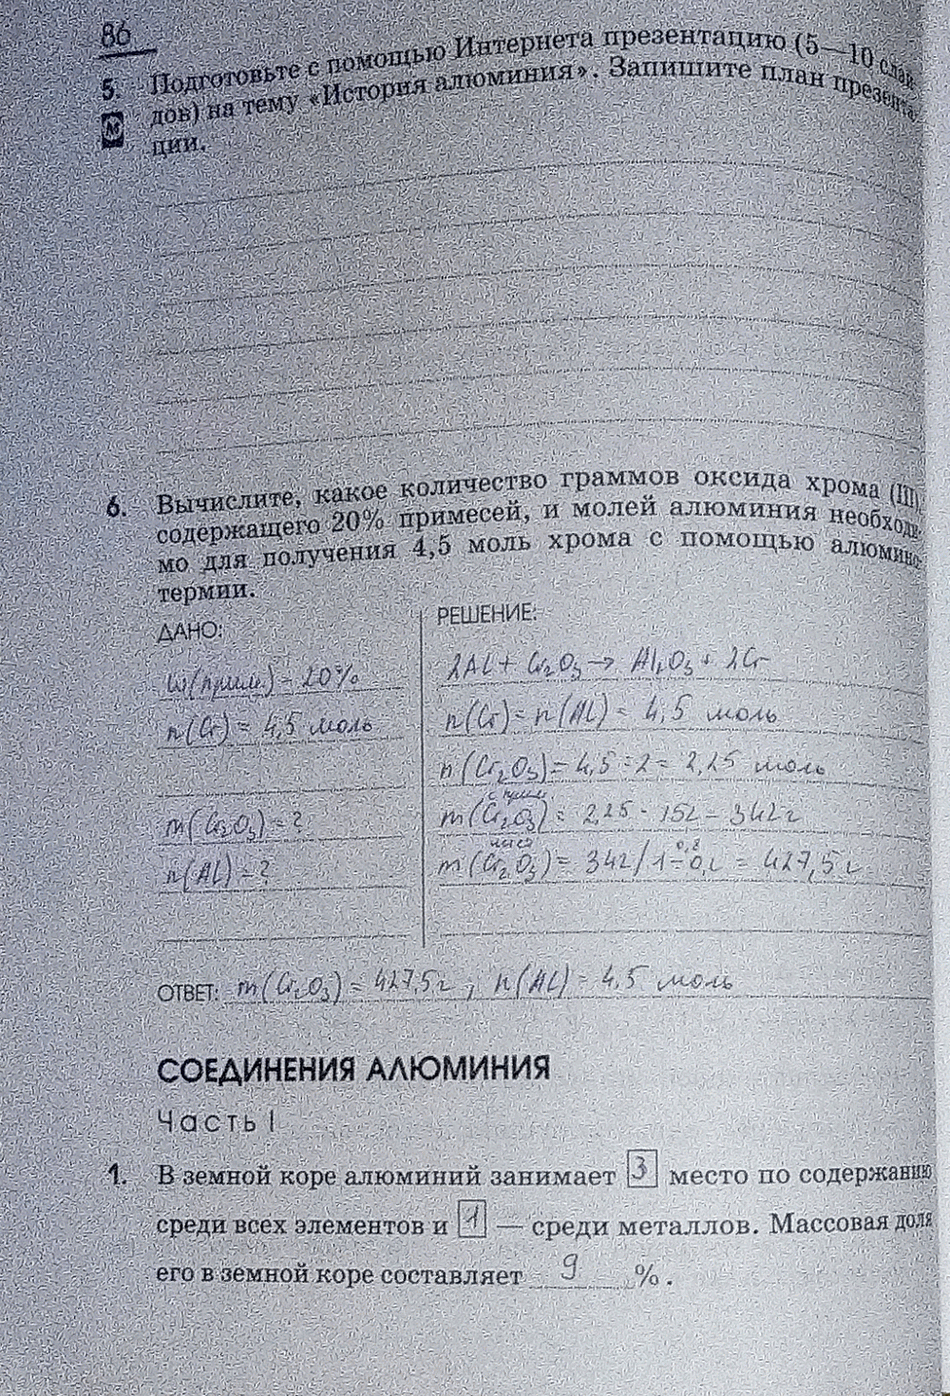 86
5. Подготовьте с помощью Интернета презентацию (5—10 слай-
М дов) на тему «История алюминия». Запишите план презента-
ции.
6. Вычислите, какое количество граммов оксида хрома (III),
содержащего 20% примесей, и молей алюминия необходи-
мо для получения 4,5 моль хрома с помощью алюмино-
термии.
ДАНО:
w(прим) = 20%
n(Cr) = 4,5 моль
m(Cr₂O₃) = ?
n(Al) = ?
РЕШЕНИЕ:
2Al + Cr₂O₃ → Al₂O₃ + 2Cr
n(Cr) = n(Al) = 4,5 моль
n(Cr₂O₃) = 4,5 : 2 = 2,25 моль
m(Cr₂O₃) = 2,25 · 152 = 342 г
m(Cr₂O₃) = 342/1-0,2 = 427,5 г
0,8
ОТВЕТ: m(Cr₂O₃) = 427,5 г ; n(Al) = 4,5 моль
СОЕДИНЕНИЯ АЛЮМИНИЯ
Часть I
1. В земной коре алюминий занимает 3 место по содержанию
среди всех элементов и 1 — среди металлов. Массовая доля
его в земной коре составляет 9 %.